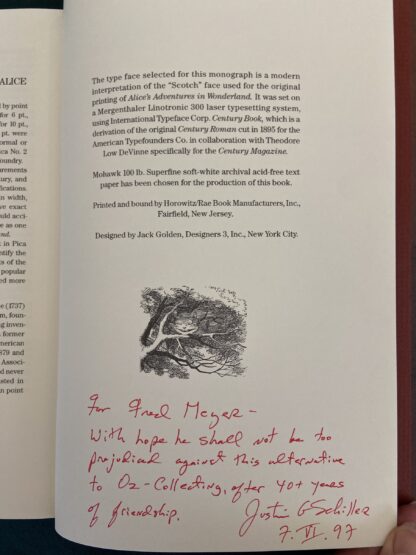 ALICE
d by point
for 6 pt.,
for 10 pt.,
pt. were
ormal or
ca No. 2
oundry.
urements
ury, and
fications.
n width,
ve exact
ould acci-
e as one
nd.
t in Pica
entify the
s of the
popular
ed more
e (1737)
m, foun-
ng inven-
former
merican
879 and
Associ-
d never
sted in
n point
The type face selected for this monograph is a modern
interpretation of the “Scotch” face used for the original
printing of Alice's Adventures in Wonderland. It was set on
a Mergenthaler Linotronic 300 laser typesetting system,
using International Typeface Corp. Century Book, which is a
derivation of the original Century Roman cut in 1895 for the
American Typefounders Co. in collaboration with Theodore
Low DeVinne specifically for the Century Magazine.
Mohawk 100 lb. Superfine soft-white archival acid-free text
paper has been chosen for the production of this book.
Printed and bound by Horowitz/Rae Book Manufacturers, Inc.,
Fairfield, New Jersey.
Designed by Jack Golden, Designers 3, Inc., New York City.
For Fred Meyer –
With hope he shall not be too
prejudiced against this alternative
to Oz-Collecting, after 40+ years
of friendship.
Justin G Schiller
7. VI. 97